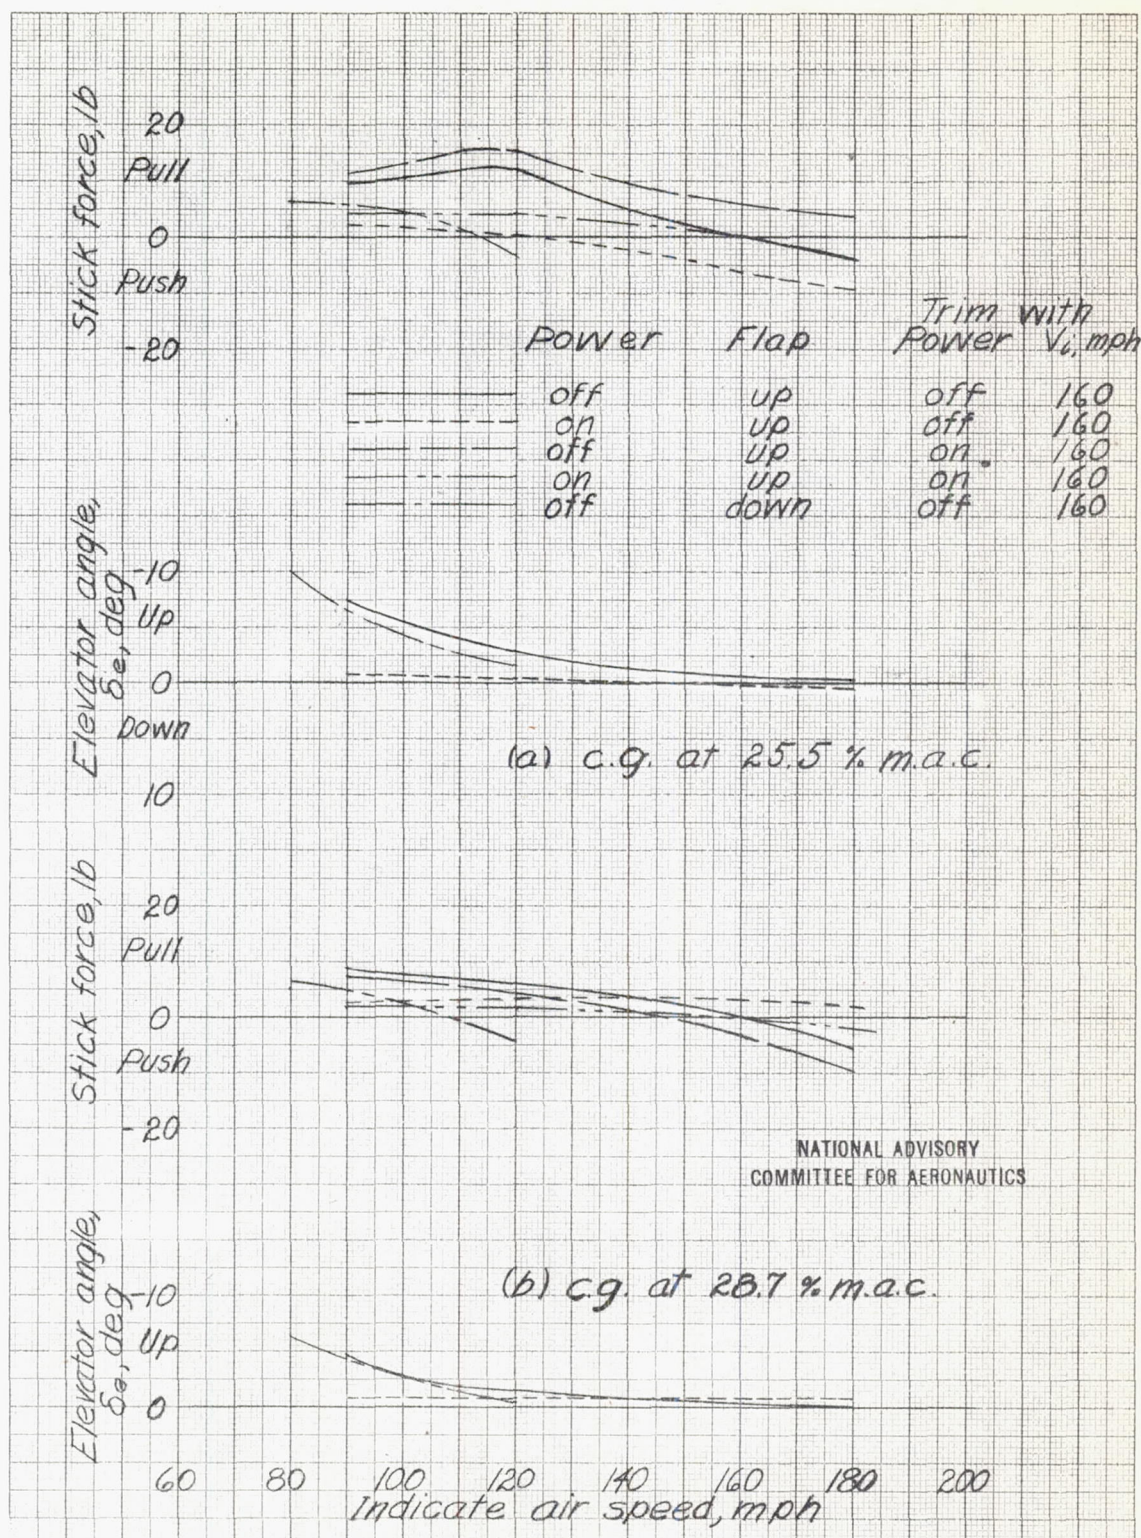 Stick force, lb
20
Pull
0
Push
-20
Trim with
Power Flap Power Vi, mph
off up off 160
on up off 160
off up on 160
on up on 160
off down off 160
Elevator angle,
δe, deg
-10
Up
0
Down
10
(a) c.g. at 25.5 % m.a.c.
Stick force, lb
20
Pull
0
Push
-20
NATIONAL ADVISORY
COMMITTEE FOR AERONAUTICS
(b) c.g. at 28.7 % m.a.c.
Elevator angle,
δe, deg
-10
Up
0
60 80 100 120 140 160 180 200
Indicate air speed, mph